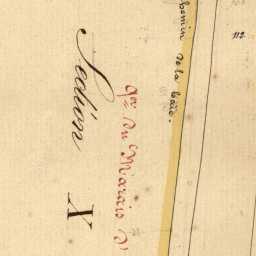 112
chemin de la baie.
qer du Marais d'
Section X